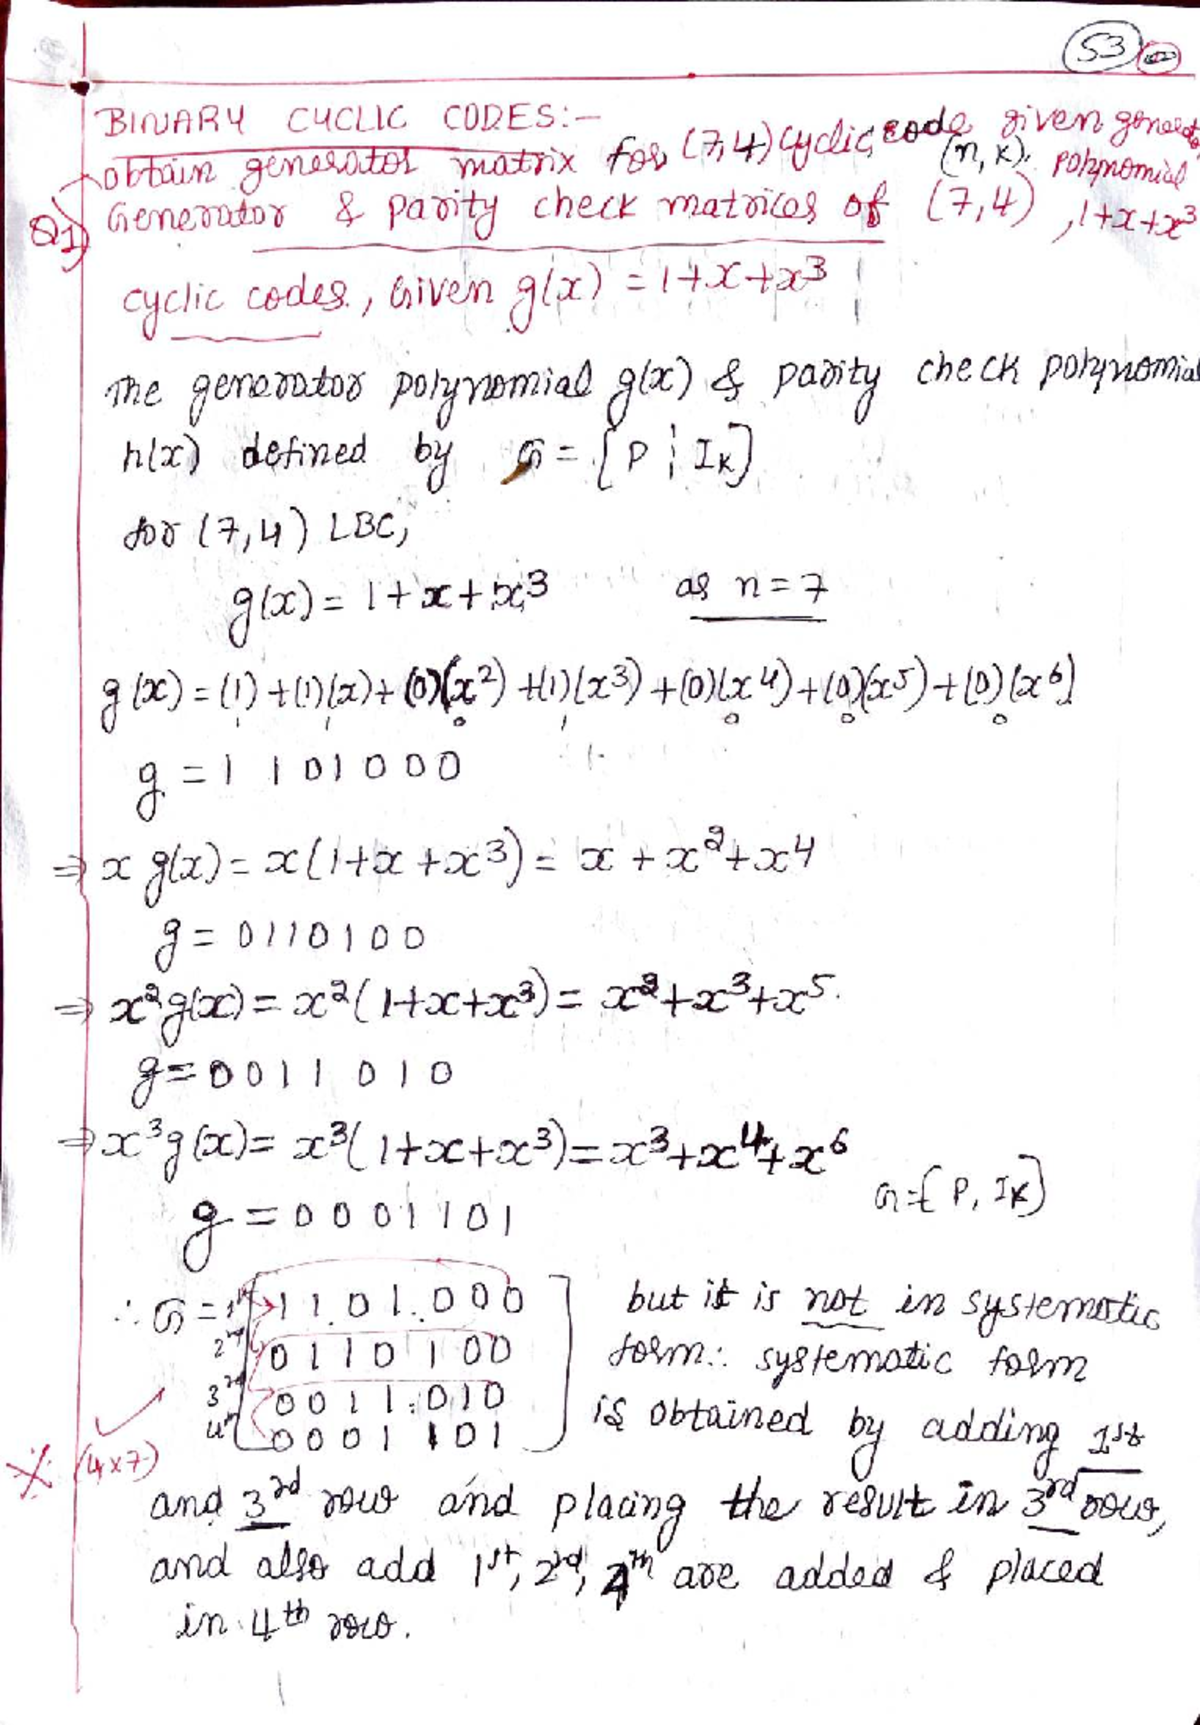 53
BINARY CYCLIC CODES:-
obtain generator matrix for (7,4) cyclic code given generator
(n, k). polynomial
Q1) Generator & parity check matrices of (7,4) , 1+x+x³
cyclic codes, Given g(x) = 1+x+x³
The generator polynomial g(x) & parity check polynomial
h(x) defined by G = [P ¦ Ik]
for (7,4) LBC,
g(x) = 1+x+x³ as n=7
g(x) = (1)+(1)(x)+(0)(x²)+(1)(x³)+(0)(x4)+(0)(x5)+(0)(x6)
1 0 1 0 0 0
g = 1 1 0 1 0 0 0
⇒ x g(x) = x(1+x+x³) = x+x²+x⁴
g = 0110100
⇒ x²g(x) = x²(1+x+x³) = x²+x³+x⁵.
g = 0011010
⇒ x³g(x) = x³(1+x+x³) = x³+x⁴+x⁶
G = [P, Ik]
g = 0001101
∴ G = 1st [1 1 0 1 0 0 0] but it is not in systematic
2nd 0 1 1 0 1 0 0 form ∴ systematic form
3rd 0 0 1 1 0 1 0 is obtained by adding 1st
4th 0 0 0 1 1 0 1
(4x7)
and 3rd row and placing the result in 3rd row,
and also add 1st, 2nd, 4th are added & placed
in 4th row.